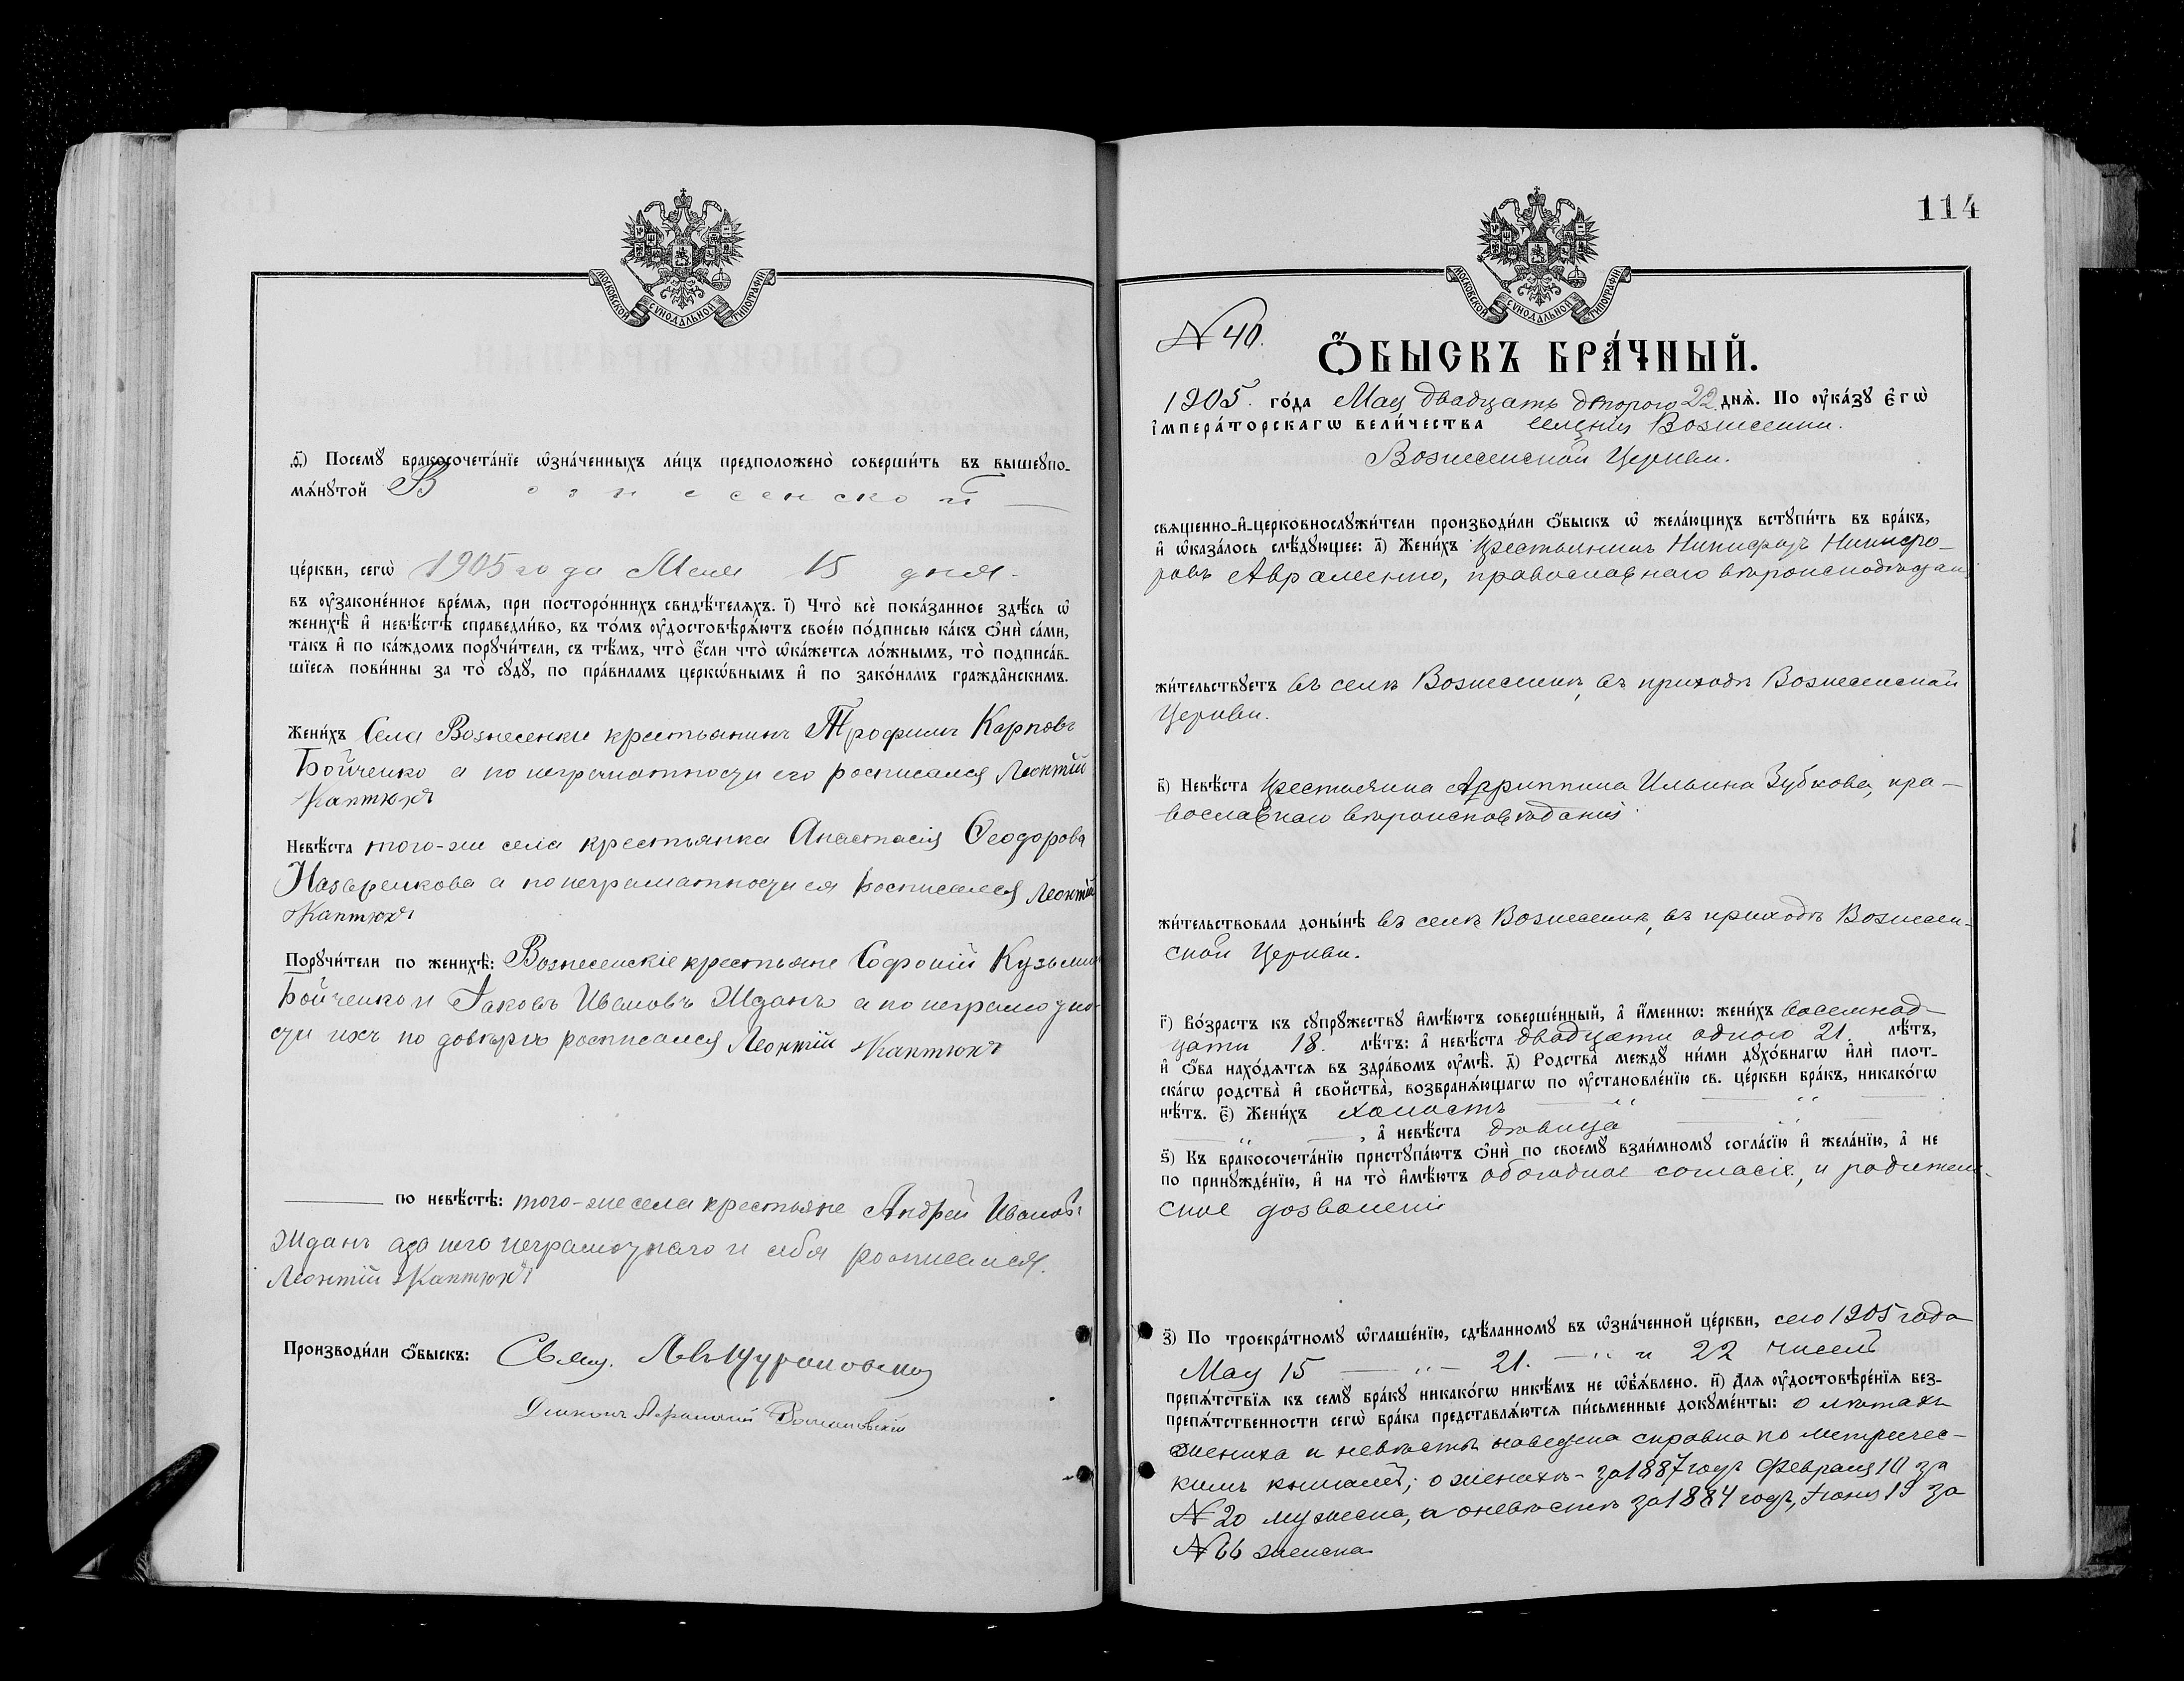 МОСКОВСКОЙ СУНОДАЛЬНОЙ ТИПОГРАФІИ
д҃і) Посемꙋ̀ бракосочета́нїе ѡ҆зна́ченныхъ ли́цъ предположено̀ соверши́ть въ вышеꙋпо-
мѧ́нꙋтой Вознесенской
це́ркви, сегѡ̀ 1905 года Мая 15 дня.
въ ᲂу҆законе́нное вре́мѧ, при посторо́ннихъ свидѣ́телѧхъ. і҃) Что̀ всѐ пока́занное здѣ́сь ѡ҆
женихѣ̀ и҆ невѣ́стѣ справедли́во, въ то́мъ ᲂу҆достовѣрѧ́ютъ свое́ю по́дписью ка́къ ѻ҆нѝ са́ми,
та́къ и҆ по ка́ждомъ порꙋчи́тели, съ тѣ́мъ, что̀ е҆́сли что̀ ѡ҆ка́жетсѧ ло́жнымъ, то̀ подписа́в-
шїесѧ пови́нны за то̀ сꙋдꙋ̀, по пра́виламъ церко́внымъ и҆ по зако́намъ гражда̑нскимъ.
Жени́хъ Села Вознесенки крестьянинъ Трофимъ Карповъ
Бойченко а по неграмотности его росписался Леонтій
Каптюхъ
Невѣ́ста того-же села крестьянка Анастасія Ѳеодорова
Назаренкова а по неграмотности ея росписался Леонтій
Каптюхъ
Порꙋчи́тели по женихѣ̀: Вознесенскіе крестьяне Софроній Кузьминъ
Бойченко и Іаковъ Ивановъ Жданъ а по неграмотно-
сти ихъ по довѣрію росписался Леонтій Каптюхъ
по невѣ́стѣ: того-же села крестьяне Андрей Ивановъ
Жданъ а за него неграмотнаго и себя росписался
Леонтій Каптюхъ
Производи́ли ѻ҆́быскъ: Свящ.
Діаконъ Романовскій
114
МОСКОВСКОЙ СУНОДАЛЬНОЙ ТИПОГРАФІИ
N 40.
Ѻ҆́БЫСКЪ БРА́ЧНЫЙ.
1905. го́да Мая двадцать второго 22 днѧ̀. По ᲂу҆ка́зꙋ є҆гѡ̀
і҆мпера́торскагѡ вели́чества селенія Вознесенки.
Вознесенской Церкви.
свѧщенно-и҆-церковнослꙋжи́тели производи́ли ѻ҆́быскъ ѡ҆ жела́ющихъ встꙋпи́ть въ бра́къ,
и҆ ѡ҆каза́лось слѣ́дꙋющее: а҃) Жени́хъ крестьянинъ Никифоръ Никифо-
ровъ Авраменко, православнаго вѣроисповѣдан.
жи́тельствꙋетъ въ селѣ Вознесенкѣ, въ приходѣ Вознесенской
Церкви.
в҃) Невѣ́ста крестьянка Агриппина Ильина Зубкова, пра-
вославнаго вѣроисповѣданія
жи́тельствовала доны́нѣ въ селѣ Вознесенкѣ, въ приходѣ Вознесен-
ской Церкви.
г҃) Во́зрастъ къ сꙋпрꙋ́жествꙋ и҆мѣ́ютъ соверше́нный, а҆ и҆́меннѡ: жени́хъ восемнад-
цати 18. лѣ́тъ: а҆ невѣ́ста двадцати одного 21. лѣ́тъ,
и҆ ѻ҆́ба нахо́дѧтсѧ въ здра́вомъ ᲂу҆мѣ̀. д҃) Родства̀ междꙋ̀ ни́ми дꙋхо́внагѡ и҆лѝ плот-
ска́гѡ родства̀ и҆ сво́йства, возбранѧ́ющагѡ по ᲂу҆становле́нїю св. це́ркви бра́къ, никако́гѡ
нѣ́тъ. є҃) Жени́хъ холостъ
, а҆ невѣ́ста дѣвица
ѕ҃) Къ бракосочета́нїю пристꙋпа́ютъ ѻ҆нѝ по своемꙋ̀ взаи́мномꙋ согла́сїю и҆ жела́нїю, а҆ не
по принꙋжде́нїю, и҆ на то̀ и҆мѣ́ютъ обоюдное согласіе, и родитель-
ское дозволеніе
з҃) По троекра́тномꙋ ѡ҆глаше́нїю, сдѣ́ланномꙋ въ ѡ҆зна́ченной це́ркви, сего 1905 года
Мая 15 — „ — 21. — „ и 22 чиселъ
препѧ́тствїѧ къ семꙋ̀ бра́кꙋ никако́гѡ никѣ́мъ не ѡ҆б̾ѧ́влено. и҃) Длѧ ᲂу҆достовѣре́нїѧ без-
препѧ́тственности сегѡ̀ бра́ка представлѧ́ютсѧ пи́сьменные докꙋме́нты: о лѣтахъ
жениха и невѣсты наведена справка по метричес-
кимъ книгамъ; о женихѣ - за 1887 годъ Февраля 10 за
N 20 мужеска, а о невѣстѣ за 1884 годъ, Іюня 19 за
N 66 женска